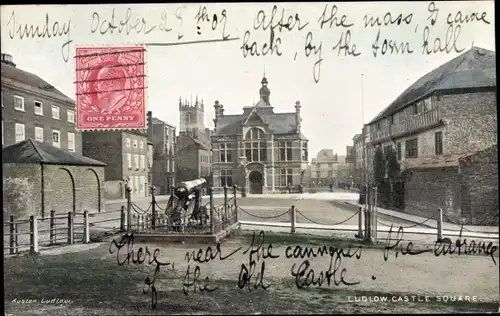 Sunday October 28th 07 after the mass, I came
back, by the town hall
ONE PENNY
There, near the cannones, the entrance
of the Old Castle.
Ludlow.
LUDLOW, CASTLE SQUARE